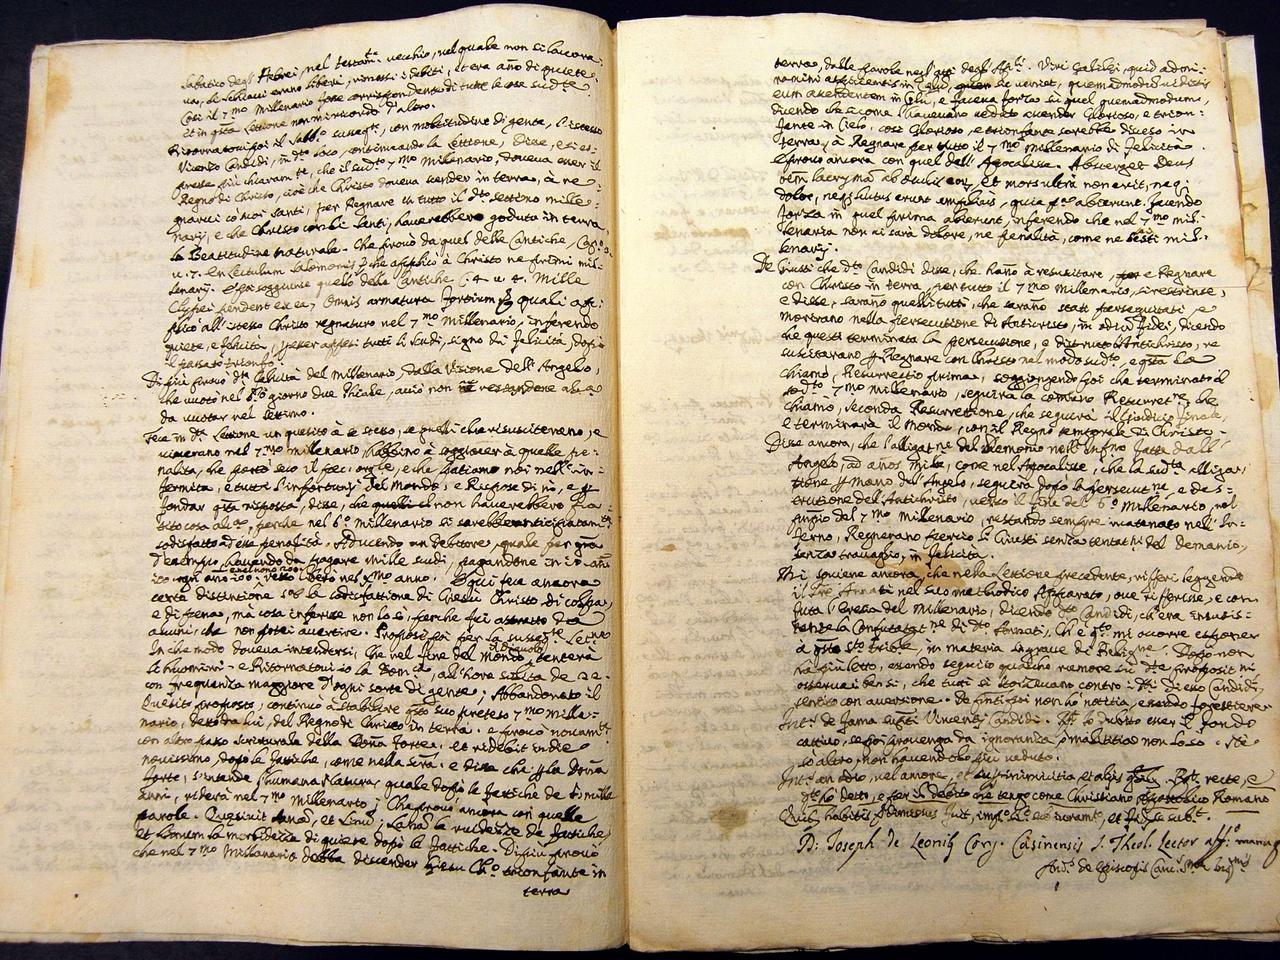 sabatico degl' Hebrei, nel testamto vecchio, nel quale non si lavora
va, li schiavi erano liberi, rimessi i debiti, et era año di quiete,
Così il 7mo Millenario
et in qsta lettione non mi ricordo d'altro.
Ritornatovi poi il Sabbo susseqte, con moltitudine di gente, l'istesso
Vicenzo Candidi, in dto loco, continuando la lettione, Disse, e si es-
presse più chiaramte, che il sudto 7mo Millenario, doveva esser il
Regno di Christo, cioè che Christo doveva scender in terra, à re-
gnarci co' suoi santi, per Regnare in tutto il dto settimo mille-
nario, e che Christo con li santi, haverebbero goduta in terra,
la Beatitudine naturale. Che provò da quel della Cantica,
u. 7. En lectulum Salomonis, che applicò à Christo ne primi mil-
lenarij. E poi soggiunse quello della Cantica C. 4 u 4. Mille
Clypei pendent ex ea, Omnis armatura fortium quali ap-
plicò all' istesso Christo regnaturo nel 7mo Millenario, inferendo
quiete, e felicità, p esser appesi tutti li scudi, signo di felicità, dopo
il passato trionfo.
Di più provò dta felicità del Millenario, dalla visione dell' Angelo,
che vuotò nel 6to giorno due Phiale, acciò non restandone
da vuotar nel settimo.
Fece in dta lettione un quesito à se stesso, se quelli che risusciteranno, e
viveranno nel 7mo millenario, habbino à soggiacer à quelle pe-
nalità, che portò seco il pecc: orgle, e che patiamo noi nell' in-
fermità, e tutti l'infortunij del Mondo, e Rispose di nò, e p
fondar qsta risposta, disse, che quelli non haverebbero pa-
tito cosa alcna, perche nel 6o Millenario si sarebbe anticipatamte
sodisfatto ad esse penalità. Adducendo un debitore, quale per gra
d'esempio, havendo da pagare mille scudi, pagandone in
ogni anno 200: resta libero nel 7mo anno. E qui fece ancora
certa distintione sopra la sodisfattione di Giesù Christo di colpa,
e di pena, mà cosa inferisse non lo sò, perche fui astratto da
alcuni, che non potei avertire. Propose poi per la sussegte lettne
In che modo doveva intendersi, che nel fine del mondo il Diavolo tenterà
le huomini - e Ritornatovi io la Domca, all' hora solita
con frequenza maggiore d'ogni sorte di gente; Abbandonato il
Quesito proposto, continuò à stabilire qsto suo preteso 7mo Mille-
nario, detto da lui, del Regno di Christo in terra. e provò novamte
con altro passo scritturale della Doña forte. et ridebit in die
novissimo, dopo le fatiche, come nella sera. e disse che p la Doña
forte, s'intende l'humana Natura, quale dopò le fatiche de 6 milla
anni, riderà nel 7mo Millenario, Che provò ancora con quelle
parole. Quesivit lanã, et linũ; La lanã la ruvidezza da fatiche,
et linum la morbidezza di quiere dopò le fattiche. Di più provò
che nel 7mo Millenario debba discender Giesu Chro trionfante in
terra
terra, dalle parole negl' atti degli Apli. Viri Galilei, quid admi-
ramini aspicientes in Celũ, sic veniet, quemadmodũ vidistis
eum ascendentem in Celũ, e faceva forza su quel quemadmodum,
dicendo che si come l'havevano veduto ascender Glorioso, e trion-
fante in Cielo, così Glorioso, e trionfante sarebbe disceso in
terra, à Regnare per tutto il 7mo Millenario di Felicità.
E provò ancora con quel dell' Apocalisse. Absterget Deus
oem lacrymã ab oculis eorũ, et mors ultrà non erit, neq
dolor, neq luctus erunt amplius, quia pa abierunt. facendo
forza in quel prima abierunt, inferendo che nel 7mo mil-
lenario non ci sarà dolore, ne penalità, come ne sesti mil-
lenarij.
De Giusti che dto Candidi disse, che hano à resuscitare, e Regnare
con Christo in terra, per tutto il 7mo Millenario, si restrinse,
e disse, sarano quelli tutti, che sarano stati perseguitati, e
morirano nella persecutione di Anticristo, in odiũ fidei, dicendo
che questi terminata la persecutione, e distrutto l'Antichristo, re
suscitarano p Regnare con Christo nel modo sudto, e qsta la
chiamò, Resurrectio prima, soggiongendo poi che terminato il
sodto 7mo Millenario, seguirà la comune Resurretne, che
chiamò, seconda Resurrettione, che seguirà il Giudicio finale,
e terminerà il Mondo, con il Regno temporale di Christo -
Disse ancora, che l'alligatne del Demonio nell' Infno fatta dall'
Angelo, ad anos Mille, come nel Apocalisse, che la sudta alliga-
tione p mano del Angelo, seguirà dopò la persecutne, e des-
trutione del Antichristo, verso il fine del 6o Millenario, nel
principio del 7mo Millenario, restando sempre incatenato nell' In-
ferno, Regnerano perciò li Giusti senza tentatni del demonio,
senza travaglio, in felicità.
Mi soviene ancora, che nella lettione precedente, riferì leggendo
il Pre Annati nel suo methodico Apparato, ove riferisse, e con-
futa l'heresia del Millenario, dicendo dto Candidi, ch'era insusis-
tente la Confutatne di dto Annati, Ch' è qto mi occorre esponer
à qsto Sto Trible, in materia sì grave di Religne. Dopo non
hà più letto, essendo seguito qualche rumore sù dte propositni
osservai bensi, che tutti si storzevano contro i detti di esso Candidi,
sentito con aversione. De pntibus non hò notitia, essendo forestiere
Int: de fama supti Vincentij Candidi. Rt: Io dubito esser p fondo
cattivo, se poi provenga da ignoranza, ò malitia non lo sò. Ne
sò altro, non havendolo più veduto.
Int: an odio, vel amore, et sup inimicitia et alijs gnlibus. Rt: recte, e
qto hò detto, è per il debito che tengo come Christiano Apostolico Romano
Quibus habitis dimissus fuit, imposo silo cũ juramto, et pris se subt.
D: Joseph de Leonis Cong. Casinensis S. Theol. Lector affo manu pp
Anto de Episcopis Canc.